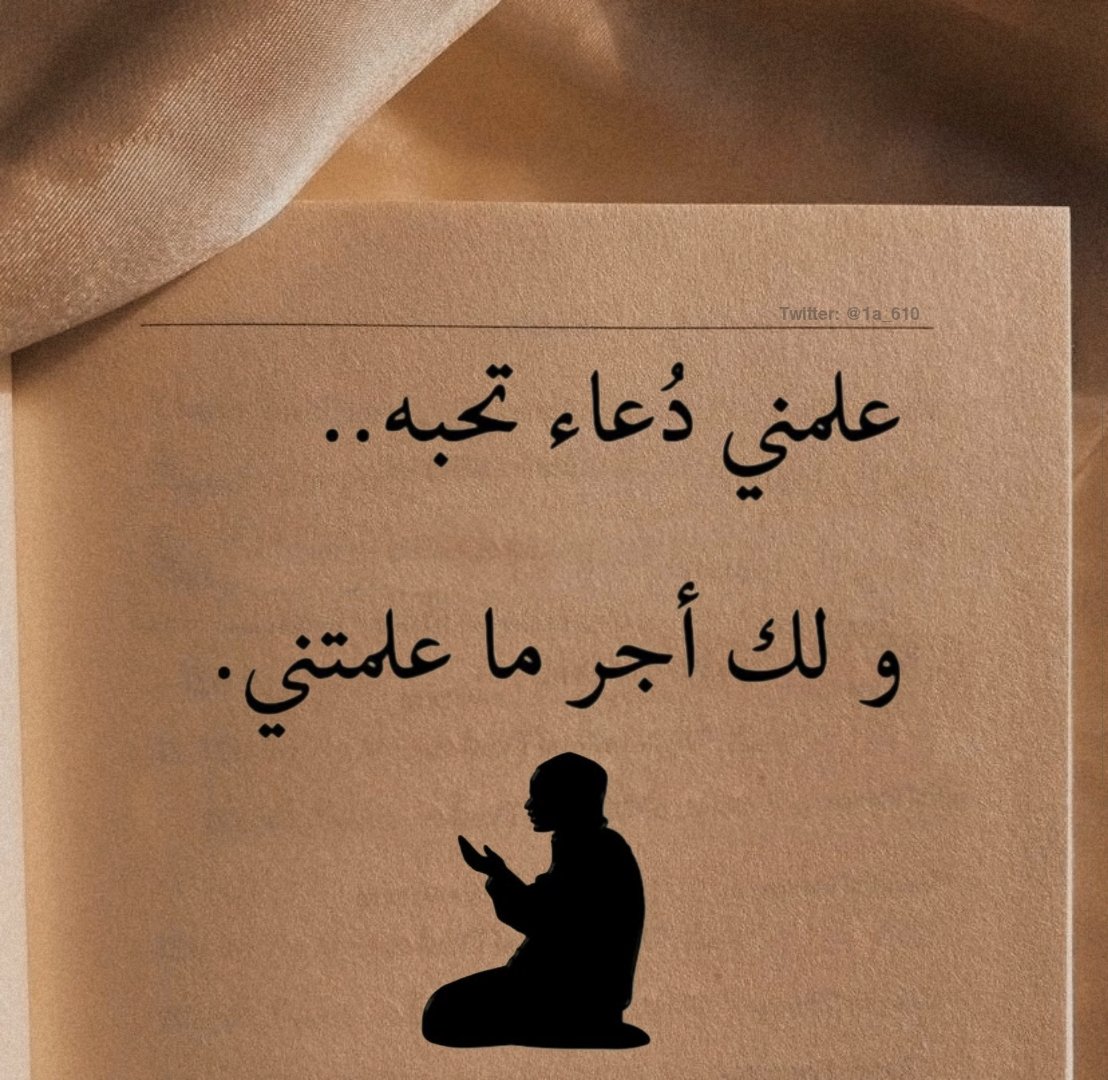 Twitter: @1a_610
علمني دُعاء تحبه..
و لك أجر ما علمتني.